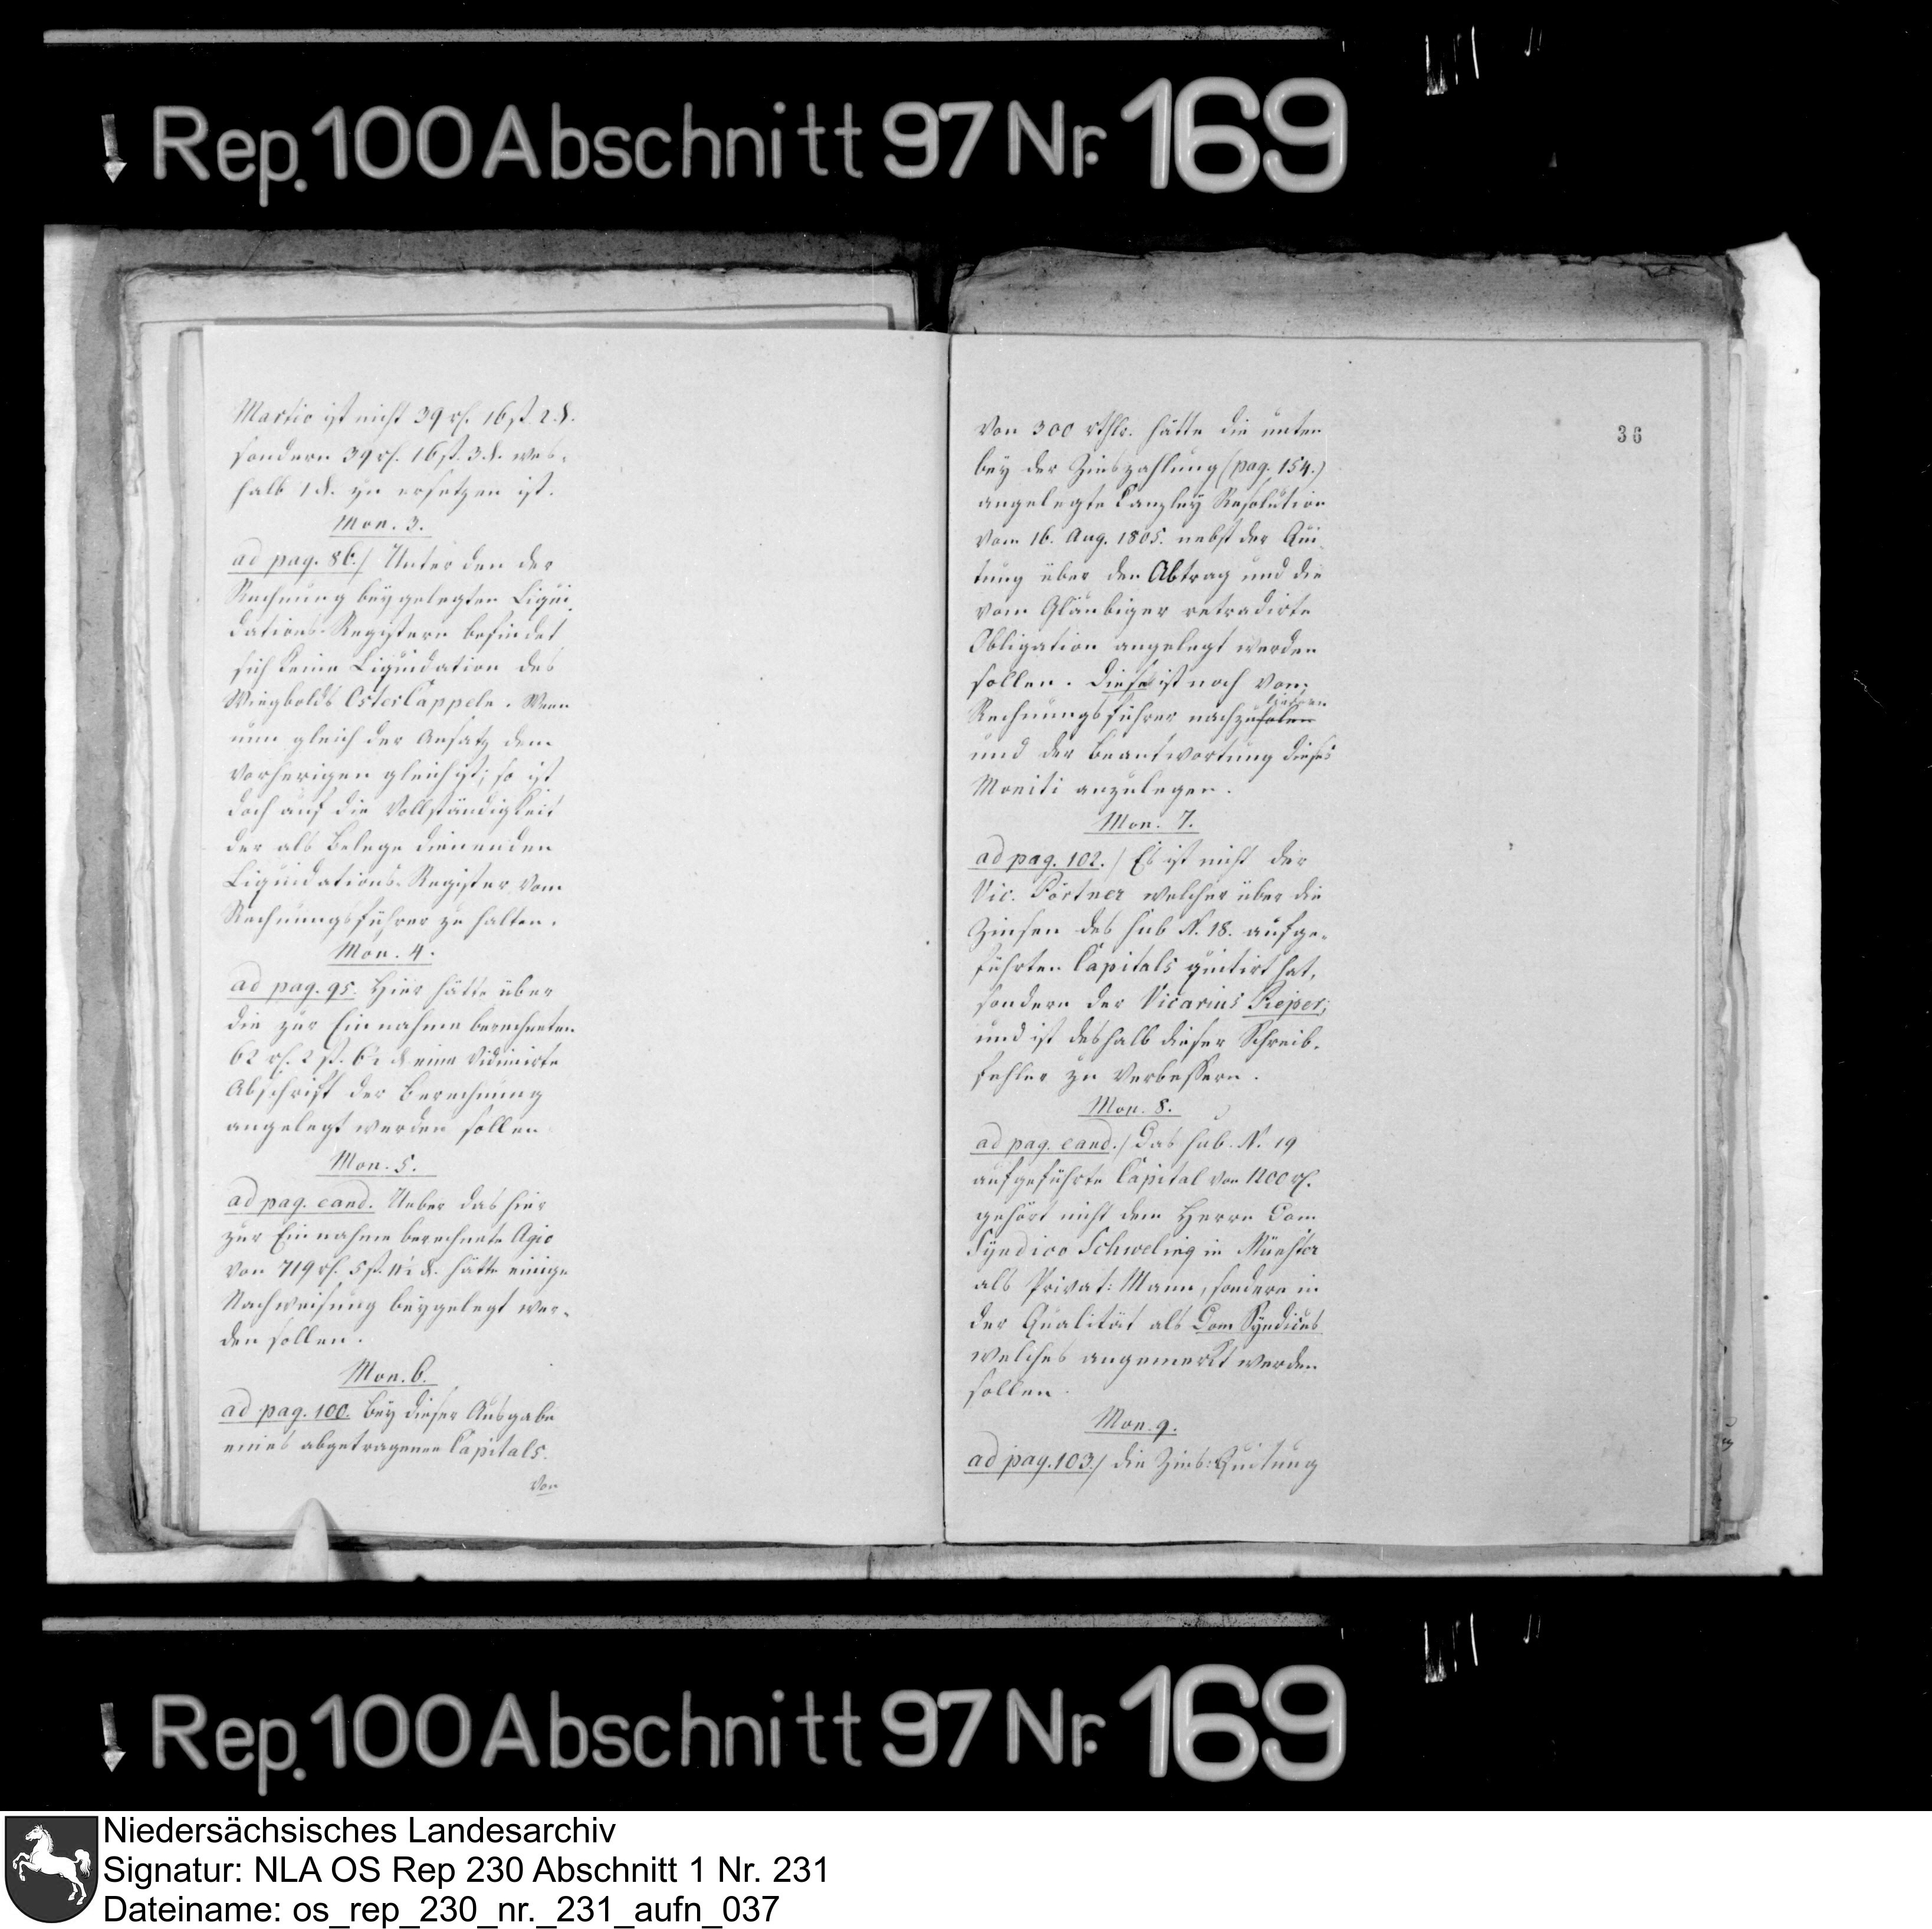 Rep. 100 Abschnitt 97 Nr. 169
Martio ist nicht 39 rh. 16 ß. 2 d.
sondern 39 rh. 16 ß. 3 d. wes-
halb 1 d. zu ersetzen ist.
Mon. 3.
ad pag. 86./ Unter den der
Rechnung beygelegten Liqui
dations-Registern befindet
sich keine Liquidation des
Wiegbolds OsterCappeln. Wenn
nun gleich der Ansatz dem
vorherigen gleich ist; so ist
doch auf die Vollständigkeit
der als Belege dienenden
Liquidations-Register vom
Rechnungsführer zu halten.
Mon. 4.
ad pag. 95. Hier hätte über
die zur Einnahme berechneten
62 rh. 2 ß. 6½ d eine vidimirte
Abschrift der Berechnung
angelegt werden sollen
Mon. 5.
ad pag. eand. Ueber das hier
zur Einnahme berechnete Agio
von 719 rh. 5 ß. 11½ d. hätte einige
Nachweisung beygelegt wer-
den sollen.
Mon. 6.
ad pag. 100. Bey dieser Ausgabe
eines abgetragenen Capitals
von
36
von 300 rthlr. hätte die unten
bey der Zinszahlung (pag. 154.)
angelegte Canzley Resolution
vom 16. Aug. 1805. nebst der Qui
tung über den Abtrag und die
vom Gläubiger retradirte
Obligation angelegt werden
sollen. Diese ist noch vom
Rechnungsführer nachzuholen
und der Beantwortung dieses
Moniti anzulegen.
Mon. 7.
ad pag. 102./ Es ist nicht der
Vic. Pörtner welcher über die
Zinsen des sub N. 18. aufge-
führten Capitals quitirt hat,
sondern der Vicarius Pieper;
und ist deshalb dieser Schreib-
fehler zu verbessern.
Mon. 8.
ad pag. eand./ Das sub. N. 19
aufgeführte Capital von 1200 rh.
gehört nicht dem Herrn Dom
Syndico Schweling in Münster
als Privat: Mann, sondern in
der Qualität als Dom Syndicus
welches angemerkt werden
sollen.
Mon. 9.
ad pag. 103./ Die Zins: Quitung
Rep. 100 Abschnitt 97 Nr. 169
Niedersächsisches Landesarchiv
Signatur: NLA OS Rep 230 Abschnitt 1 Nr. 231
Dateiname: os_rep_230_nr._231_aufn_037